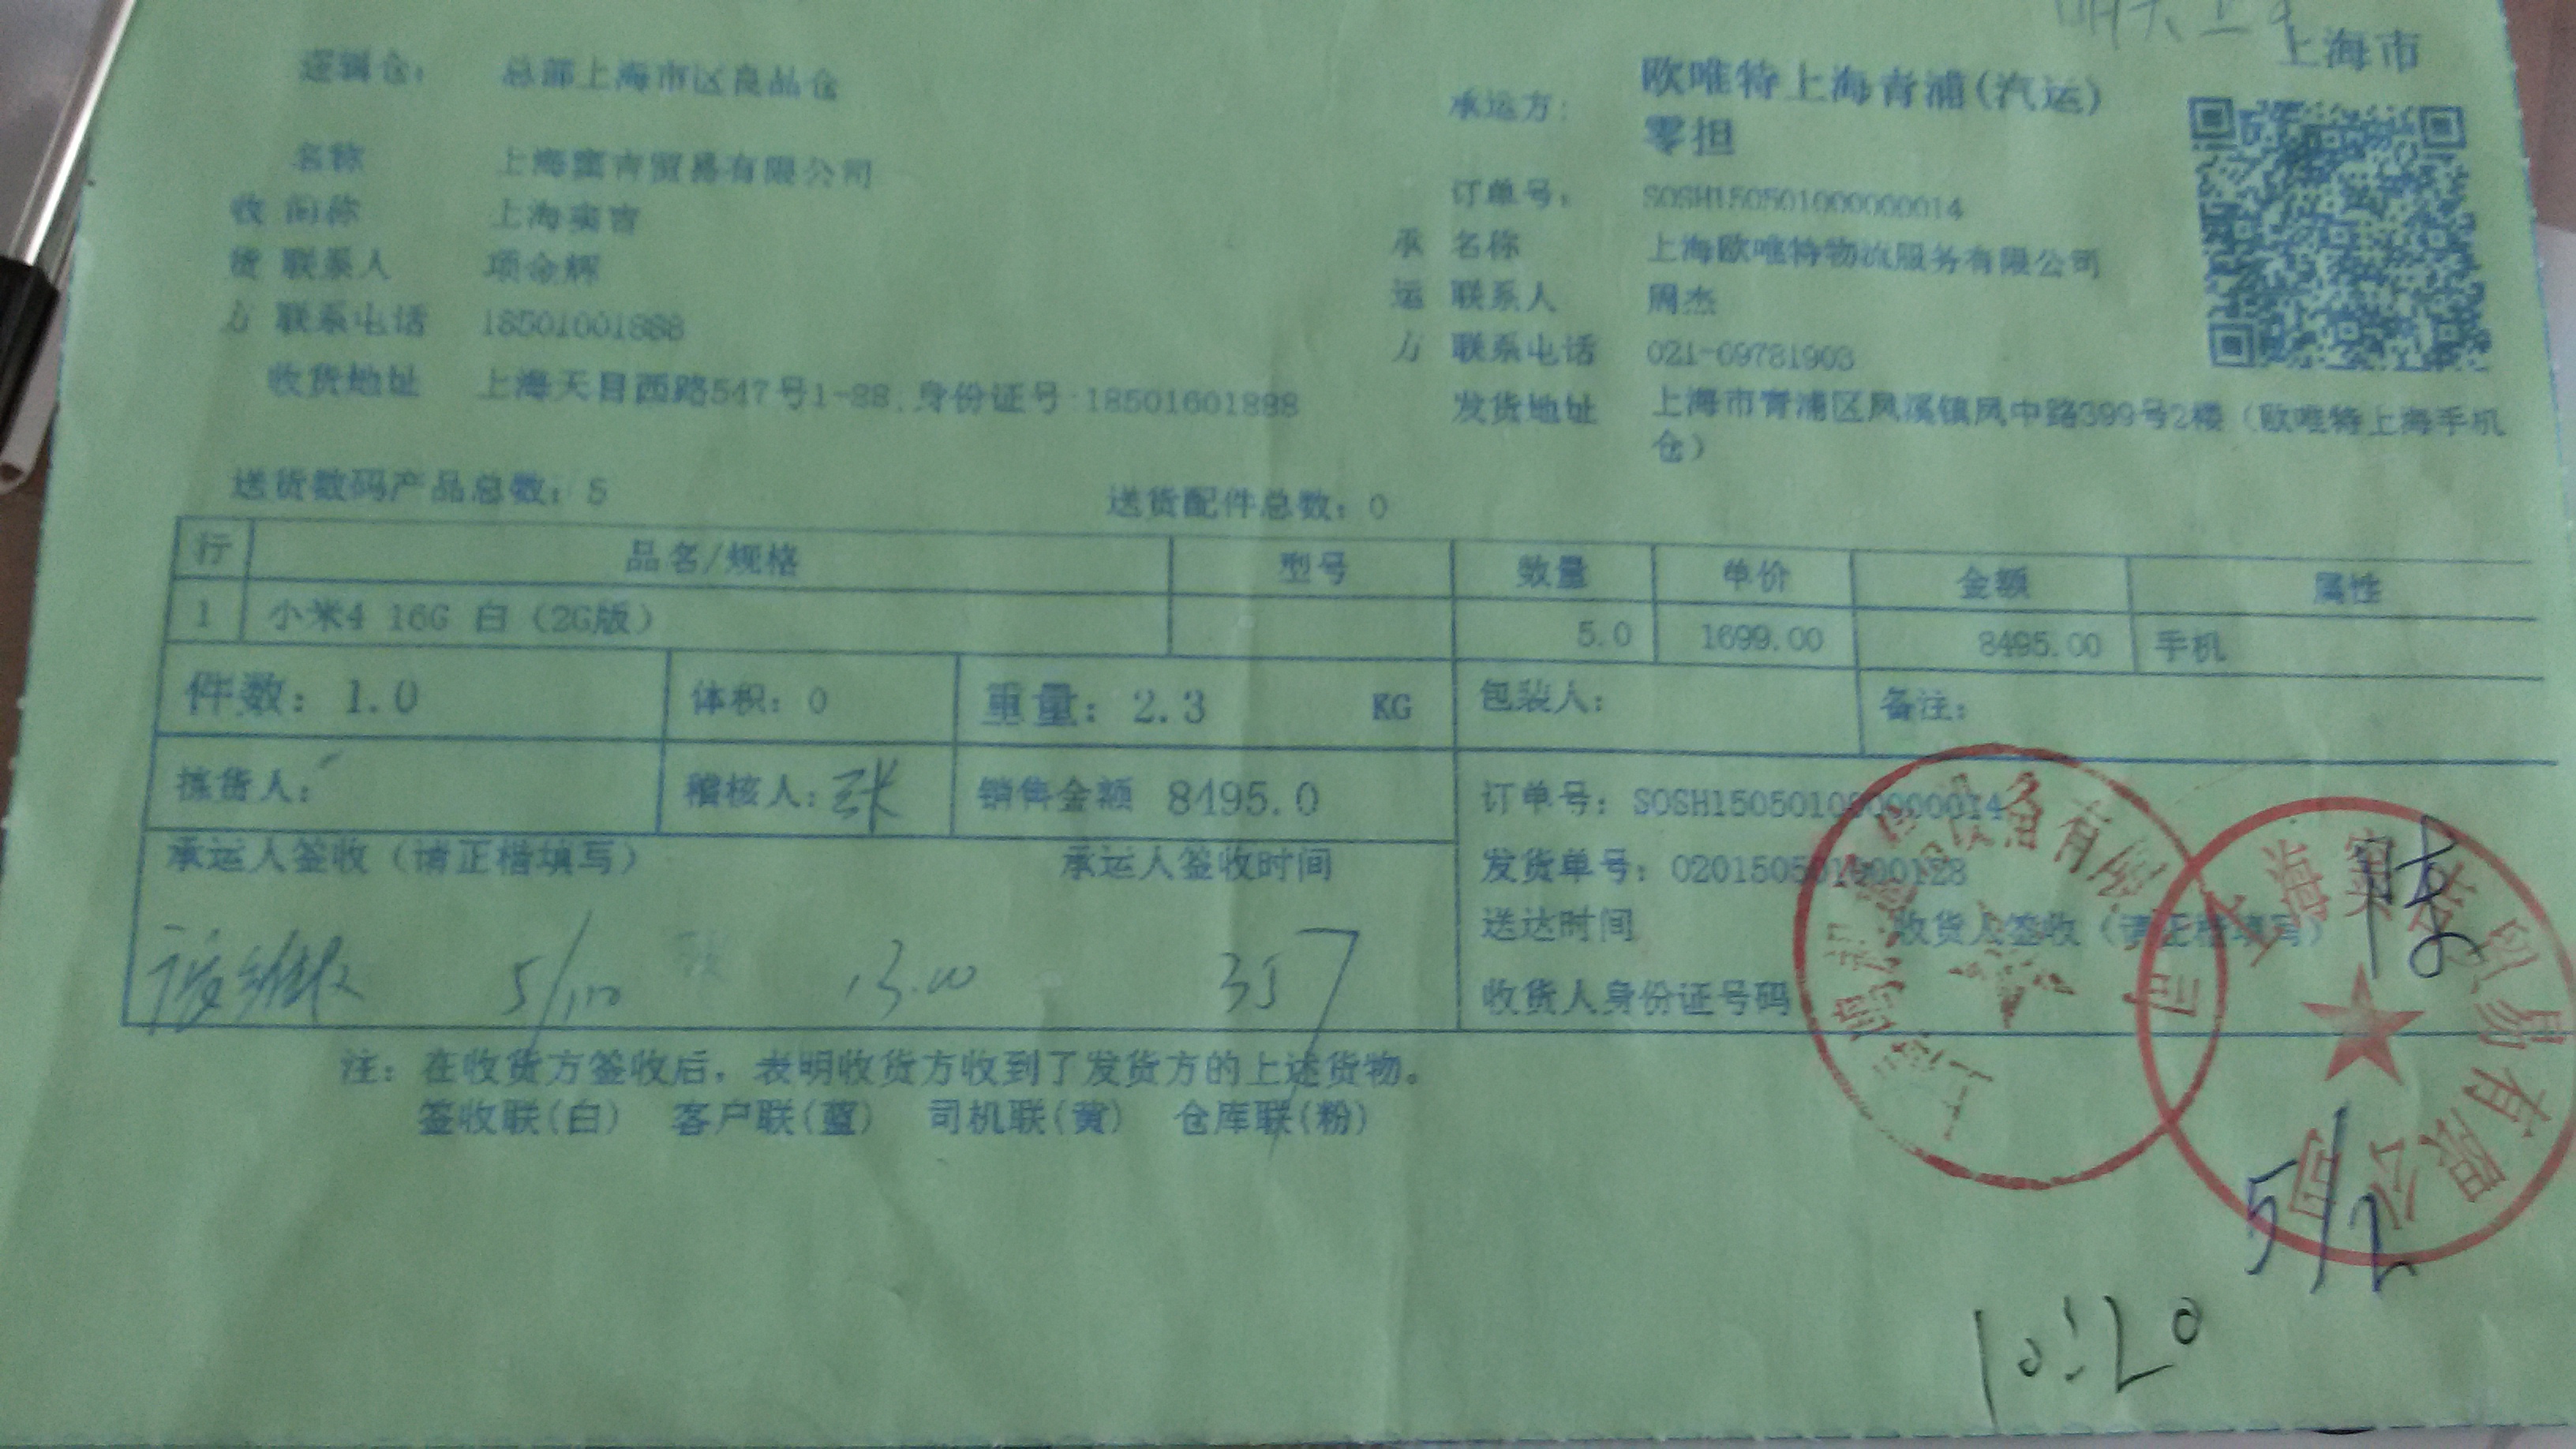 上海市
逻辑仓: 总部上海市区良品仓
承运方: 欧唯特上海青浦(汽运)
零担
名称 上海 贸易有限公司
订单号: SOSH150501000000014
收 简称 上海
承 名称 上海欧唯特物流服务有限公司
货 联系人 项 辉
运 联系人 周杰
方 联系电话
方 联系电话 021-69781903
收货地址 上海天目西路547号1-88,身份证号:18501601888
发货地址 上海市青浦区凤溪镇凤中路399号2楼(欧唯特上海手机
仓)
送货数码产品总数: 5 送货配件总数: 0
行 品名/规格 型号 数量 单价 金额 属性
1 小米4 16G 白(2G版) 5.0 1699.00 8495.00 手机
件数: 1.0 体积: 0 重量: 2.3 KG 包装人: 备注:
拣货人: 稽核人: 张 销售金额 8495.0 订单号: SOSH150501000000014
承运人签收(请正楷填写) 承运人签收时间
发货单号: 0201505010000128
送达时间 收货人签收(请正楷填写)
收货人身份证号码
13.00
357
注: 在收货方签收后,表明收货方收到了发货方的上述货物。
签收联(白) 客户联(蓝) 司机联(黄) 仓库联(粉)
贸易有限公司
5/2
10:20